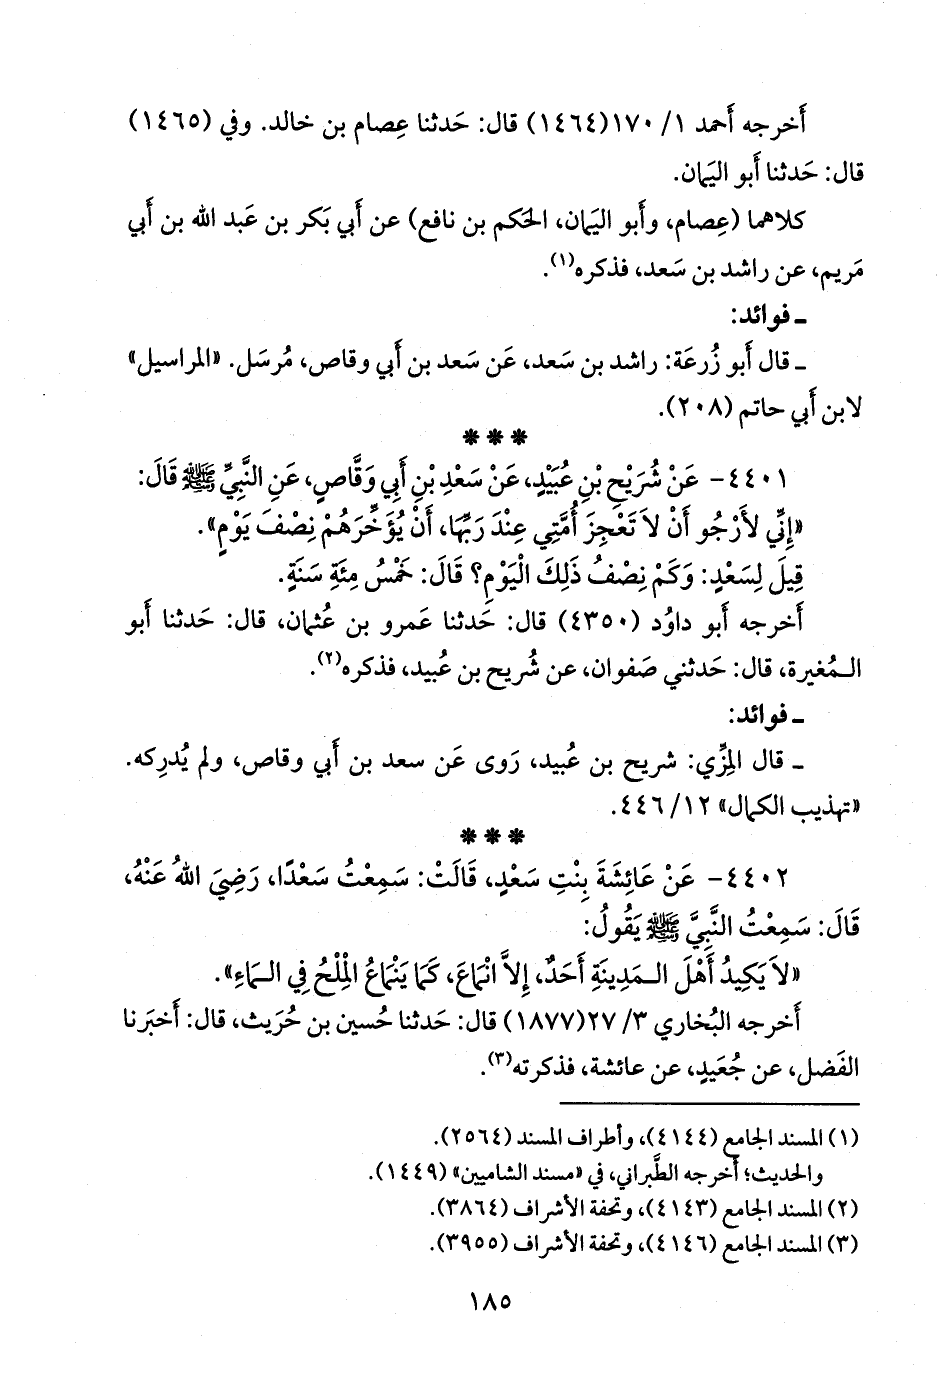 أَخرجه أَحمد ١/ ١٧٠(١٤٦٤) قال: حَدثنا عِصام بن خالد. وفي (١٤٦٥)
قال: حَدثنا أَبو اليَمان.
كلاهما (عِصام، وأَبو اليَمان، الحَكم بن نافع) عن أَبي بَكر بن عَبد الله بن أَبي
مَريم، عن راشد بن سَعد، فذكره(١).
ـ فوائد:
ـ قال أَبو زُرعَة: راشد بن سَعد، عَن سَعد بن أَبي وقاص، مُرسَل. «المراسيل»
لابن أَبي حاتم (٢٠٨).
* * *
٤٤٠١- عَنْ شُرَيْحِ بْنِ عُبَيْدٍ، عَنْ سَعْدِ بْنِ أَبِي وَقَّاصٍ، عَنِ النَّبِيِّ ﷺ قَالَ:
«إِنِّي لأَرْجُو أَنْ لاَ تَعْجِزَ أُمَّتِي عِنْدَ رَبِّهَا، أَنْ يُؤَخِّرَهُمْ نِصْفَ يَوْمٍ».
قِيلَ لِسَعْدٍ: وَكَمْ نِصْفُ ذَلِكَ الْيَوْمِ؟ قَالَ: خَمْسُ مِئَةِ سَنَةٍ.
أَخرجه أَبو داوُد (٤٣٥٠) قال: حَدثنا عَمرو بن عُثمان، قال: حَدثنا أَبو
الـمُغيرة، قال: حَدثني صَفوان، عن شُريح بن عُبيد، فذكره(٢).
ـ فوائد:
ـ قال المِزِّي: شريح بن عُبيد، رَوى عَن سعد بن أَبي وقاص، ولم يُدرِكه.
«تهذيب الكمال» ١٢/ ٤٤٦.
* * *
٤٤٠٢- عَنْ عَائِشَةَ بِنْتِ سَعْدٍ، قَالَتْ: سَمِعْتُ سَعْدًا، رَضِيَ اللهُ عَنْهُ،
قَالَ: سَمِعْتُ النَّبِيَّ ﷺ يَقُولُ:
«لاَ يَكِيدُ أَهْلَ الـمَدِينَةِ أَحَدٌ، إِلاَّ انْمَاعَ، كَمَا يَنْمَاعُ الْمِلْحُ فِي الـمَاءِ».
أَخرجه البُخاري ٣/ ٢٧(١٨٧٧) قال: حَدثنا حُسين بن حُرَيث، قال: أَخبَرنا
الفَضل، عن جُعَيدٍ، عن عائشة، فذكرته(٣).
(١) المسند الجامع (٤١٤٤)، وأطراف المسند (٢٥٦٤).
والحديث؛ أخرجه الطَّبراني، في «مسند الشاميين» (١٤٤٩).
(٢) المسند الجامع (٤١٤٣)، وتحفة الأشراف (٣٨٦٤).
(٣) المسند الجامع (٤١٤٦)، وتحفة الأشراف (٣٩٥٥).
١٨٥